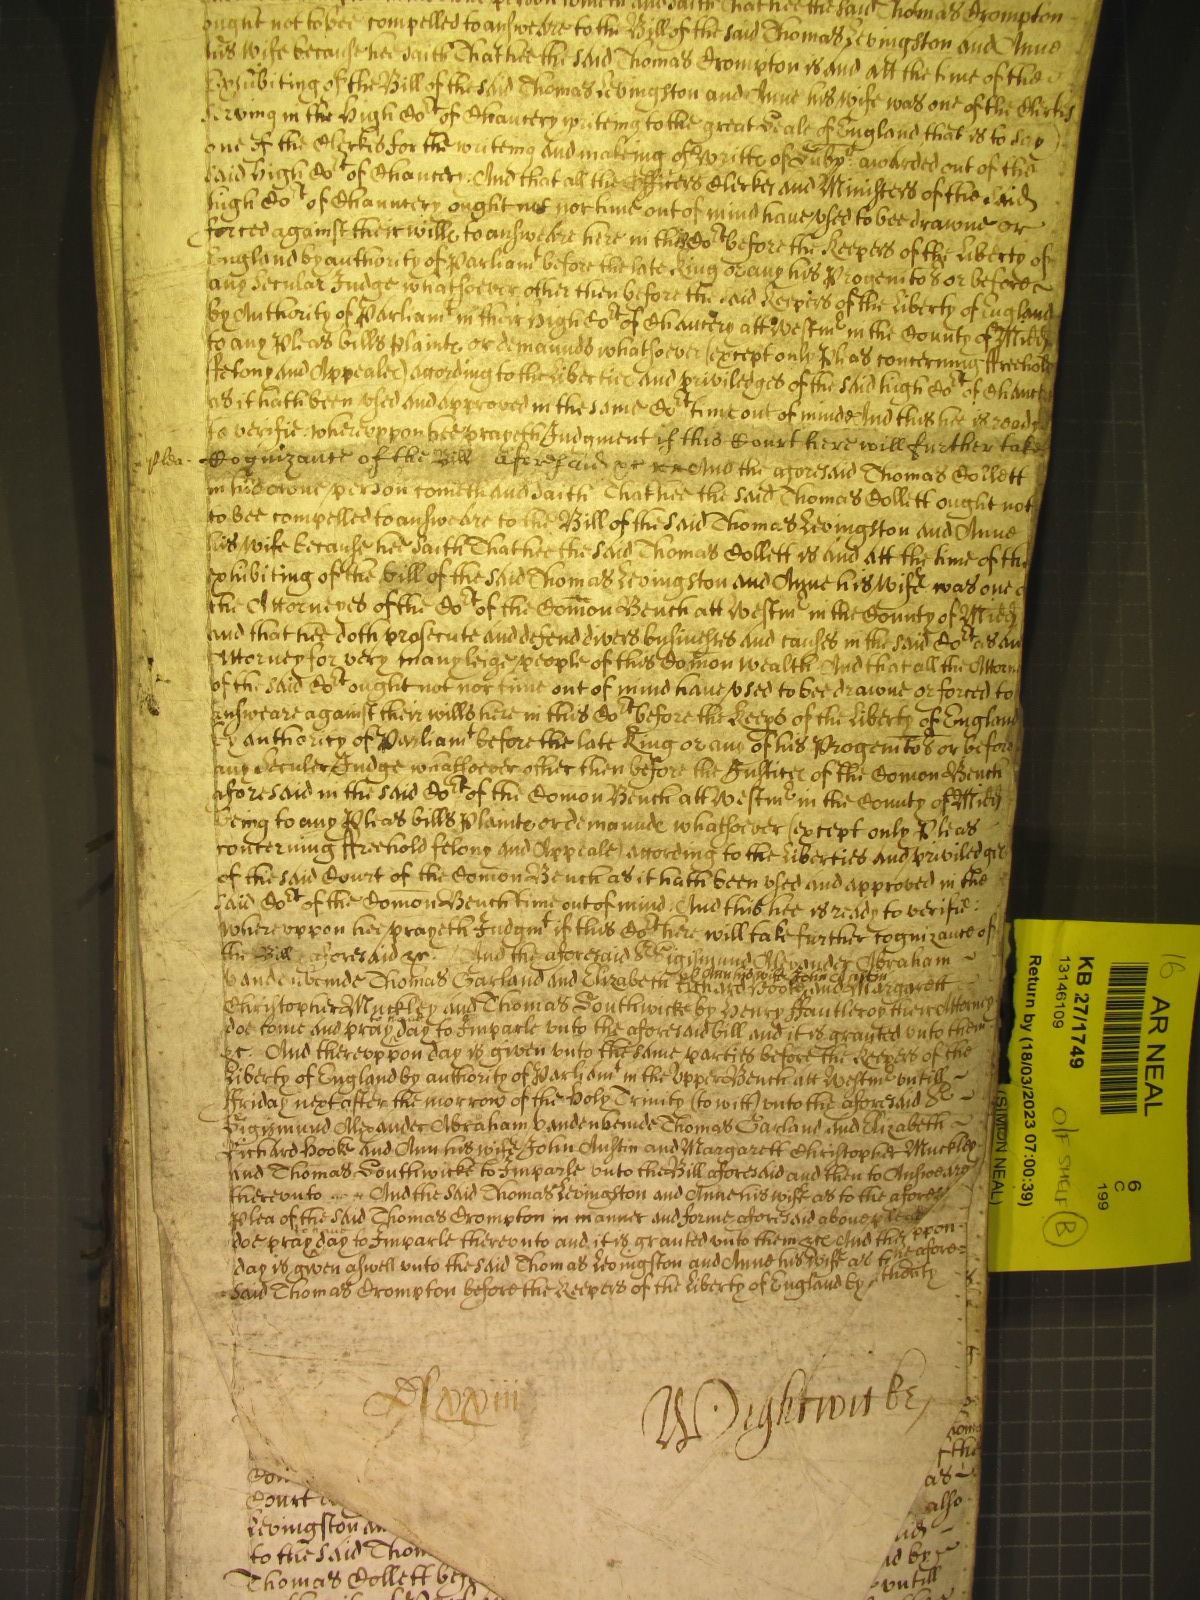 person cometh and saith That hee the said Thomas Crompton
ought not to bee compelled to answeare to the Bill of the said Thomas Levingston and Anne
his wife because hee saith That hee the said Thomas Crompton is and att the time of the
Exhibiting of the Bill of the said Thomas Levingston and Anne his wife was one of the Clerkes
serving in the high Cort of Chancery writeing to the great Seale of England that is to say
one of the Clerkes for the writeing and makeing of Writts of Subp awarded out of the
said high Cort of Chancery. And that all the Officers Clerkes and Ministers of the said
high Cort of Chauncery ought not nor time out of mind have vsed to bee drawne or
forced against their wills to answeare here in this Cort before the Keepers of the Liberty of
England by authority of Parliamt before the late King or any his Progenitors or before
any Secular Judge whatsoever other then before the said Keepers of the Liberty of England
by Authority of Parliamt in their high Cort of Chancery att Westmr in the County of Midd
to any Pleas bills Plaints or demaunds whatsoever (except only Pleas concerning ffreehold
ffelony and Appeales) according to the Liberties and priviledges of the said high Cort of Chance
as it hath been vsed and approved in the same Cort time out of minde And this hee is ready
to verifie wherevppon hee prayeth Judgment if this Court here will further take
plea. Cognizance of the Bill aforesaid &c And the aforesaid Thomas Collett
in his owne person cometh and saith That hee the said Thomas Collett ought not
to bee compelled to answeare to the Bill of the said Thomas Levingston and Anne
his wife because hee saith That hee the said Thomas Collett is and att the time of the
exhibiting of the bill of the said Thomas Levingston and Anne his wife was one o
the Attorneyes of the Cort of the Comon Bench att Westmr in the County of Midd
and that hee doth prosecute and defend divers businesses and causes in the said Cort as an
Attorney for very many leige people of this Comon wealth And that all the Attorn
of the said Cort ought not nor time out of mind have vsed to bee drawne or forced to
answeare against their wills here in this Cort before the Keeps of the Liberty of England
by authority of Parliamt before the late King or any of his Progenitors or before
any Seculer Judge whatsoever other then before the Justices of the Comon Bench
aforesaid in the said Cort of the Comon Bench att Westmr in the County of Midd
being to any Pleas bills Plaints or demaunds whatsoever (except only Pleas
concerning ffreehold felony and Appeales) according to the Liberties and priviledges
of the said Court of the Comon Bench as it hath been vsed and approved in the
said Cort of the Comon Bench time out of mind And this hee is ready to verifie
wherevppon hee prayeth Judgmt if this Cort here will take further cognizance of
the Bill aforesaid &c. And the aforesaid Sr Sigismund Alexander Abraham
Vandenbemde Thomas Garland and Elizabeth Richard Hooke and Ann his wife John Austin and Margarett
Christopher Muckley and Thomas Southwicke by Henry ffauntleroy their Attorney
doe come and pray day to Imparle vnto the aforesaid bill and it is granted vnto them
&c. And therevppon day is given vnto the same parties before the Keepers of the
Liberty of England by authority of Parliamt in the vpper Bench att Westmr vntill
ffriday next after the morrow of the Holy Trinity (to witt) vnto the aforesaid Sr
Sigismund Alexander Abraham Vandenbemde Thomas Garland and Elizabeth
Richard Hooke and Ann his wife John Austin and Margarett Christopher Muckley
and Thomas Southwicke to Imparle vnto the Bill aforesaid and then to Answeare
therevnto And the said Thomas Levingston and Anne his wife as to the afores
Plea of the said Thomas Crompton in manner and forme aforesaid above plea
doe pray day to Imparle therevnto and it is granted vnto them &c And thervppon
day is given aswell vnto the said Thomas Levingston and Anne his wife as to the afore
said Thomas Crompton before the Keepers of the Liberty of England by authority
Wightwicke
Court
Levingston an
to the said Thom
Thomas Collett
as
also
vntill
16
AR NEAL
6
C
199
KB 27/1749
13146109
O/F SHELF B
Return by (18/03/2023 07:00:39)
(SIMON NEAL)